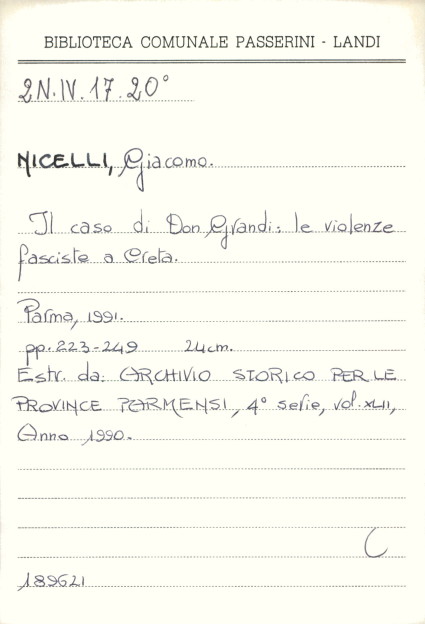 BIBLIOTECA COMUNALE PASSERINI - LANDI
2N.IV.17.20°
NICELLI, Giacomo.
Il caso di Don Grandi: le violenze
fasciste a Creta.
Parma, 1991.
pp. 223-249 24cm.
Estr. da: ARCHIVIO STORICO PER LE
PROVINCE PARMENSI, 4° serie, vol. XLII,
Anno 1990.
C
189621